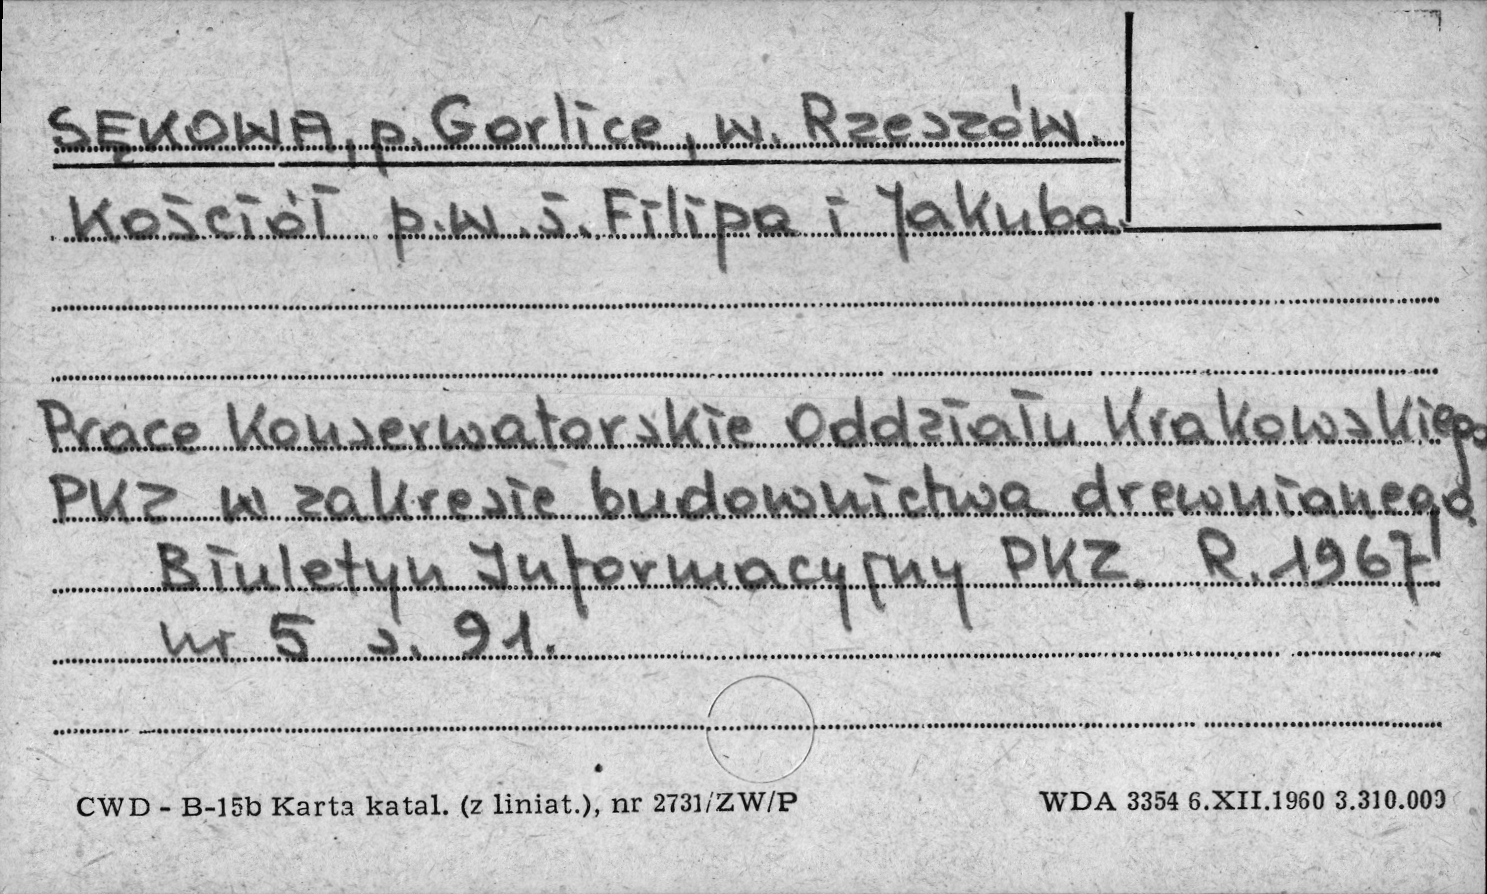 SĘKOWA, p. Gorlice, w. Rzeszów.
Kościół p.w. ś. Filipa i Jakuba
Prace Konserwatorskie Oddziału Krakowskiego
PKZ w zakresie budownictwa drewnianego.
Biuletyn Informacyjny PKZ. R. 1967
nr 5 s. 91.
CWD - B-15b Karta katal. (z liniat.), nr 2731/ZW/P
WDA 3354 6.XII.1960 3.310.000